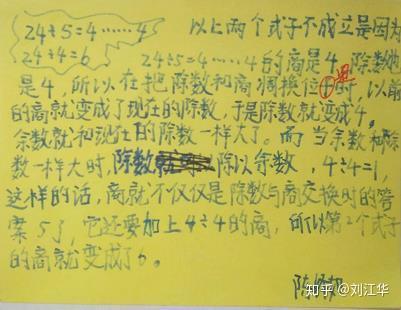 24÷5=4……4 以上两个式子不成立是因为
24÷4=6 24÷5=4……4的商是4,除数也
是4,所以在把除数和商调换位置时,以前
的商就变成了现在的除数,于是除数就变成4,
余数就和现在的除数一样大了。而当余数和除
数一样大时,除数就 除以余数,4÷4=1,
这样的话,商就不仅仅是除数与商交换时的答
案5了,它还要加上4÷4的商,所以第2个式子
的商就变成了6。
知乎 @刘江华